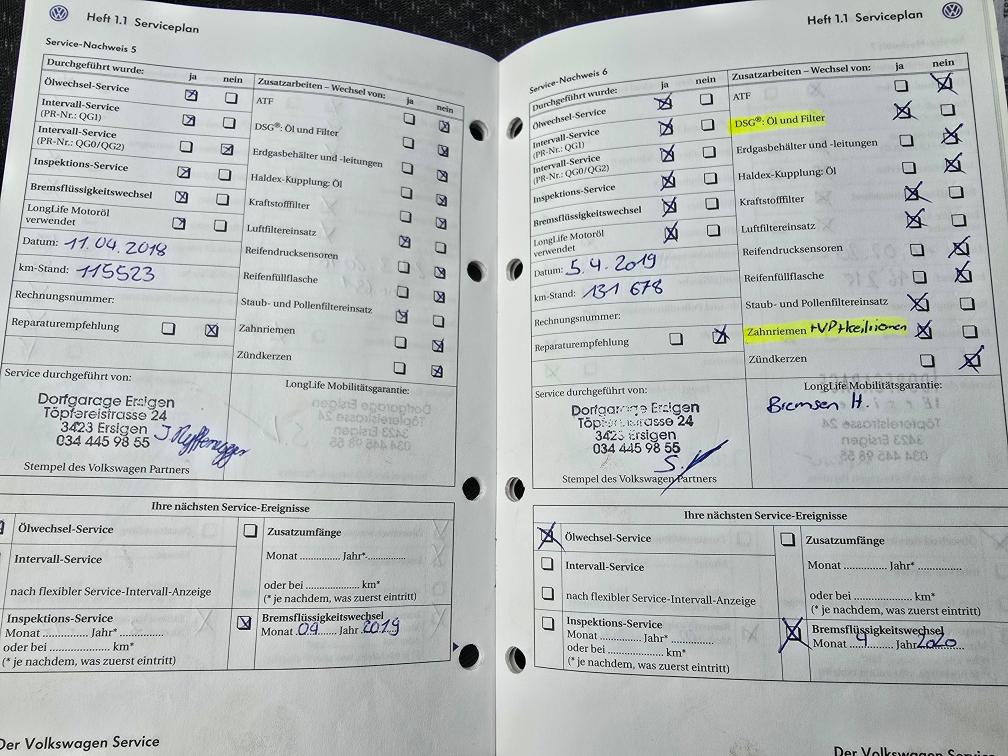 Heft 1.1 Serviceplan
Service-Nachweis 5
Durchgeführt wurde: ja nein
Ölwechsel-Service
Intervall-Service
(PR-Nr.: QG1)
Intervall-Service
(PR-Nr.: QG0/QG2)
Inspektions-Service
Bremsflüssigkeitswechsel
LongLife Motoröl
verwendet
Datum: 11.04.2018
km-Stand: 115523
Rechnungsnummer:
Reparaturempfehlung
Zusatzarbeiten – Wechsel von: ja nein
ATF
DSG®: Öl und Filter
Erdgasbehälter und -leitungen
Haldex-Kupplung: Öl
Kraftstofffilter
Luftfiltereinsatz
Reifendrucksensoren
Reifenfüllflasche
Staub- und Pollenfiltereinsatz
Zahnriemen
Zündkerzen
Service durchgeführt von:
Dorfgarage Ersigen
Töpfereistrasse 24
3423 Ersigen
034 445 98 55
Stempel des Volkswagen Partners
LongLife Mobilitätsgarantie:
Ihre nächsten Service-Ereignisse
Ölwechsel-Service
Intervall-Service
nach flexibler Service-Intervall-Anzeige
Inspektions-Service
Monat ............ Jahr* ...............
oder bei ................... km*
(* je nachdem, was zuerst eintritt)
Zusatzumfänge
Monat ............ Jahr* ...............
oder bei ................... km*
(* je nachdem, was zuerst eintritt)
Bremsflüssigkeitswechsel
Monat 09 Jahr 2019
Der Volkswagen Service
Heft 1.1 Serviceplan
Service-Nachweis 6
Durchgeführt wurde: ja nein
Ölwechsel-Service
Intervall-Service
(PR-Nr.: QG1)
Intervall-Service
(PR-Nr.: QG0/QG2)
Inspektions-Service
Bremsflüssigkeitswechsel
LongLife Motoröl
verwendet
Datum: 5.4.2019
km-Stand: 131 678
Rechnungsnummer:
Reparaturempfehlung
Zusatzarbeiten – Wechsel von: ja nein
ATF
DSG®: Öl und Filter
Erdgasbehälter und -leitungen
Haldex-Kupplung: Öl
Kraftstofffilter
Luftfiltereinsatz
Reifendrucksensoren
Reifenfüllflasche
Staub- und Pollenfiltereinsatz
Zahnriemen +VP+Keilriemen
Zündkerzen
Service durchgeführt von:
Dorfgarage Ersigen
Töpfereistrasse 24
3423 Ersigen
034 445 98 55
Stempel des Volkswagen Partners
LongLife Mobilitätsgarantie:
Bremsen H.
Ihre nächsten Service-Ereignisse
Ölwechsel-Service
Intervall-Service
nach flexibler Service-Intervall-Anzeige
Inspektions-Service
Monat ............ Jahr* ...............
oder bei ................... km*
(* je nachdem, was zuerst eintritt)
Zusatzumfänge
Monat ............ Jahr* ...............
oder bei ................... km*
(* je nachdem, was zuerst eintritt)
Bremsflüssigkeitswechsel
Monat 4 Jahr 2020
Der Volkswagen Service